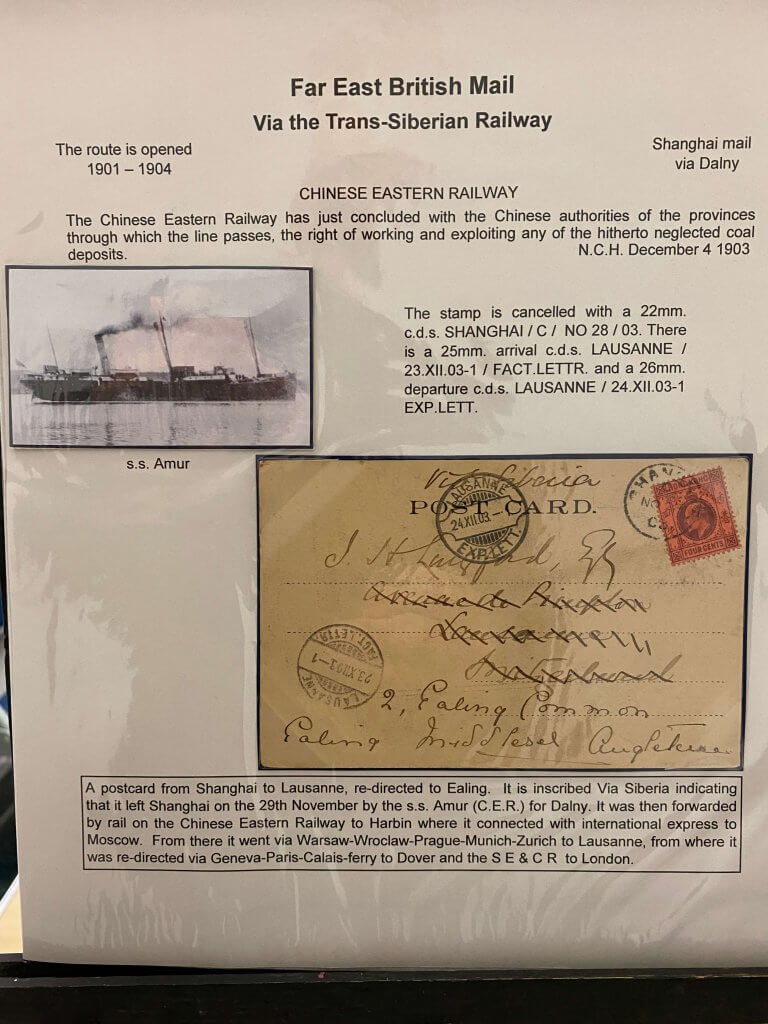 Far East British Mail
Via the Trans-Siberian Railway
The route is opened
1901 – 1904
Shanghai mail
via Dalny
CHINESE EASTERN RAILWAY
The Chinese Eastern Railway has just concluded with the Chinese authorities of the provinces
through which the line passes, the right of working and exploiting any of the hitherto neglected coal
deposits.
N.C.H. December 4 1903
The stamp is cancelled with a 22mm.
c.d.s. SHANGHAI / C / NO 28 / 03. There
is a 25mm. arrival c.d.s. LAUSANNE /
23.XII.03-1 / FACT.LETTR. and a 26mm.
departure c.d.s. LAUSANNE / 24.XII.03-1
EXP.LETT.
s.s. Amur
Via Siberia
POST CARD.
LAUSANNE
24.XII.03.
EXP.LETT.
SHANG
NO
C
HONG KONG
FOUR CENTS
J. H. Langford, Esq
Lausanne
Switzerland
FACT.LETTR.
23.XII.03–1
LAUSANNE
2, Ealing Common
Ealing Middlesex Angleterre
A postcard from Shanghai to Lausanne, re-directed to Ealing. It is inscribed Via Siberia indicating
that it left Shanghai on the 29th November by the s.s. Amur (C.E.R.) for Dalny. It was then forwarded
by rail on the Chinese Eastern Railway to Harbin where it connected with international express to
Moscow. From there it went via Warsaw-Wroclaw-Prague-Munich-Zurich to Lausanne, from where it
was re-directed via Geneva-Paris-Calais-ferry to Dover and the S E & C R to London.